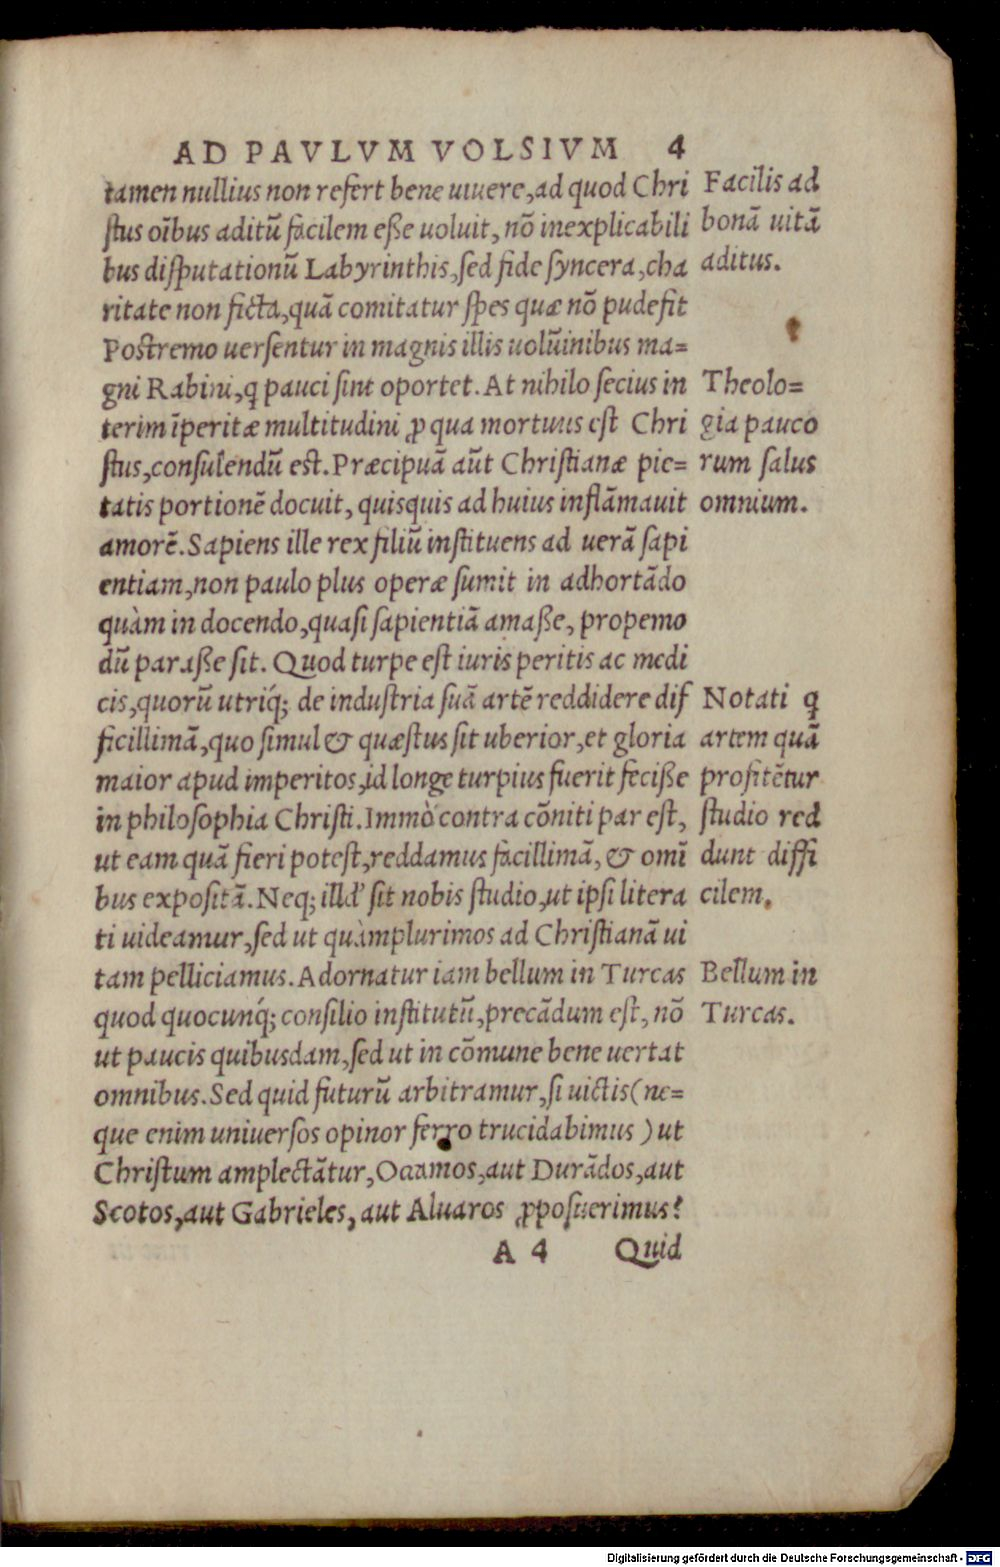 AD PAVLVM VOLSIVM 4
tamen nullius non refert bene uiuere, ad quod Chri
ſtus oībus aditū facilem eſſe uoluit, nō inexplicabili
bus diſputationū Labyrinthis, ſed fide ſyncera, cha
ritate non ficta, quā comitatur ſpes quæ nō pudefit
Poſtremo uerſentur in magnis illis uolūinibus ma=
gni Rabini, ꝗ pauci ſint oportet. At nihilo ſecius in
terim īperitæ multitudini ꝓ qua mortuus eſt Chri
ſtus, conſulendū eſt. Præcipuā aūt Chriſtianæ pie=
tatis portionē docuit, quisquis ad huius inflāmauit
amorē. Sapiens ille rex filiū inſtituens ad uerā ſapi
entiam, non paulo plus operæ ſumit in adhortādo
quàm in docendo, quaſi ſapientiā amaße, propemo
dū paraße ſit. Quod turpe eſt iuris peritis ac medi
cis, quorū utriq́; de induſtria ſuā artē reddidere dif
ficillimā, quo ſimul & quæſtus ſit uberior, et gloria
maior apud imperitos, id longe turpius fuerit feciße
in philoſophia Chriſti. Immò contra cōniti par eſt,
ut eam quā fieri poteſt, reddamus facillimā, & omī
bus expoſitā. Neq; illd' ſit nobis ſtudio, ut ipſi litera
ti uideamur, ſed ut quàmplurimos ad Chriſtianā ui
tam pelliciamus. Adornatur iam bellum in Turcas
quod quocunq́; conſilio inſtitutū, precādum eſt, nō
ut paucis quibusdam, ſed ut in cōmune bene uertat
omnibus. Sed quid futurū arbitramur, ſi uictis (ne=
que enim uniuerſos opinor ferro trucidabimus) ut
Chriſtum amplectātur, Occamos, aut Durādos, aut
Scotos, aut Gabrieles, aut Aluaros ꝓpoſuerimus?
A 4 Quid
Facilis ad
bonā uitā
aditus.
Theolo=
gia pauco
rum ſalus
omnium.
Notati ꝗ
artem quā
profitētur
ſtudio red
dunt diffi
cilem.
Bellum in
Turcas.
Digitalisierung gefördert durch die Deutsche Forschungsgemeinschaft - DFG